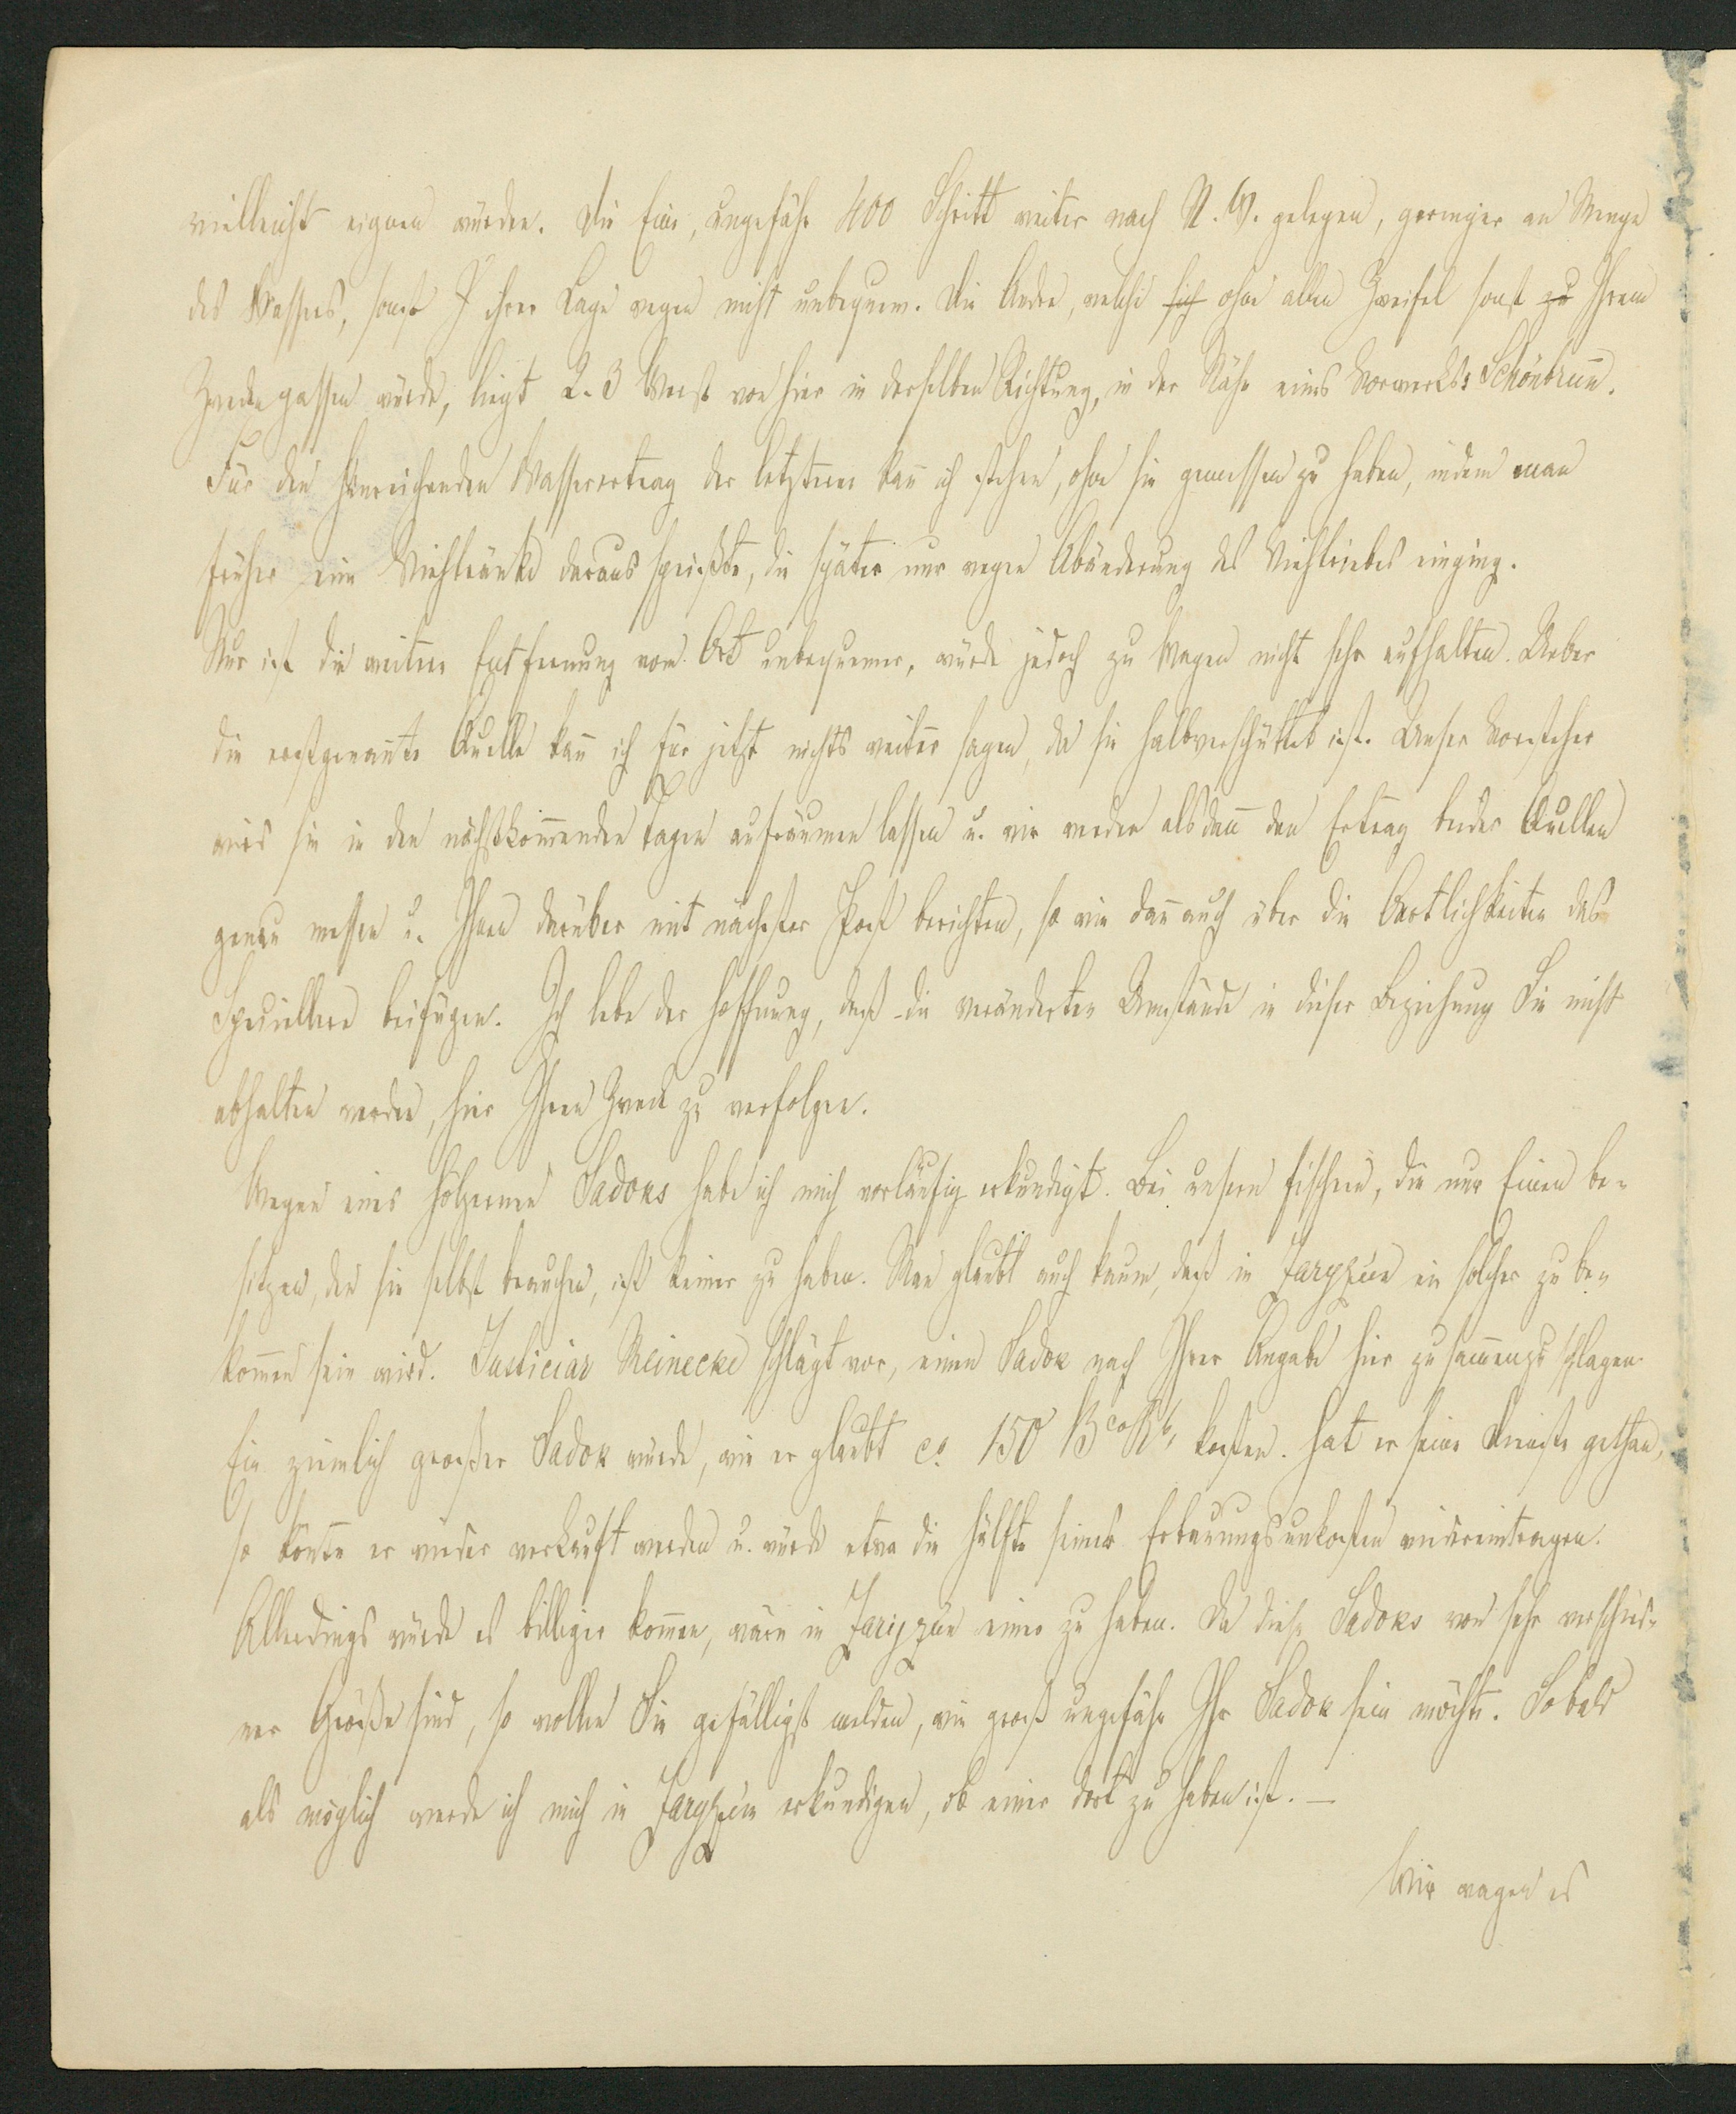 vielleicht eignen würden. Die Eine, ungefähr 400 Schritt weiter nach N. W. gelegen, geringer an Menge
des Wassers, sonst ihrer Lage wegen nicht unbequem. Die Andre, welche sich ohne allen Zweifel sonst zu Ihrem
Zwecke passen würde, liegt 2-3 Werst von hier in derselben Richtung, in der Nähe eines Vorwerks: Schönbrunn.
Für den hinreichenden Wasserertrag der letztern kann ich stehen, ohne sie gemessen zu haben, indem man
früher eine Viehtränke daraus speißte, die später nur wegen Abänderung des Viehtriebes einging.
Nur ist die weitere Entfernung vom Ort unbequemer, würde jedoch zu Wagen nicht sehr aufhalten. Ueber
die erstgenannte Quelle kann ich für jetzt nichts weiter sagen, da sie halbverschüttet ist. Unser Vorsteher
wird sie in den nächstkommenden Tagen aufräumen lassen u. wir werden alsdann den Ertrag beider Quellen
genau messen u. Ihnen darüber mit nächster Post berichten, so wie dann auch über die Oertlichkeiten das
Speciellere beifügen. Ich lebe der Hoffnung, daß die veränderten Umstände in dieser Beziehung Sie nicht
abhalten werden, hier Ihren Zweck zu verfolgen.
Wegen eines hölzernen Sadoks habe ich mich vorläufig erkundigt. Bei unsern Fischern, die nur Einen be-
sitzen, den sie selbst brauchen, ist keiner zu haben. Man glaubt auch kaum, daß in Zaryzin ein solcher zu be-
kommen sein wird. Justiciar Reinecke schlägt vor, einen Sadok nach Ihrer Angabe hier zusammenzuschlagen.
Ein ziemlich großer Sadok würde, wie er glaubt ca. 150 BcoRb. kosten. Hat er seine Dienste gethan,
so könnte er wieder verkauft werden u. würde etwa die Hälfte seiner Erbauungsunkosten wiedereintragen.
Allerdings würde es billiger kommen, wäre in Zarizin einer zu haben. Da diese Sadoks von sehr verschied-
ner Größe sind, so wollen Sie gefälligst melden, wie groß ungefähr Ihr Sadok sein möchte. Sobald
als möglich werde ich mich in Zaryzin erkundigen, ob einer dort zu haben ist. —
Wir wagen es